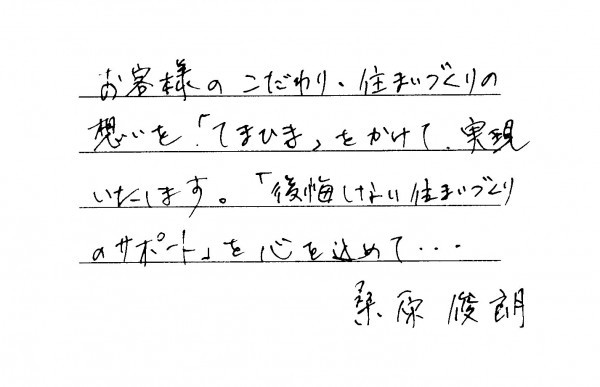 お客様のこだわり・住まいづくりの
想いを「てまひま」をかけて、実現
いたします。「後悔しない住まいづくり
のサポート」を心を込めて・・・
桑原俊朗